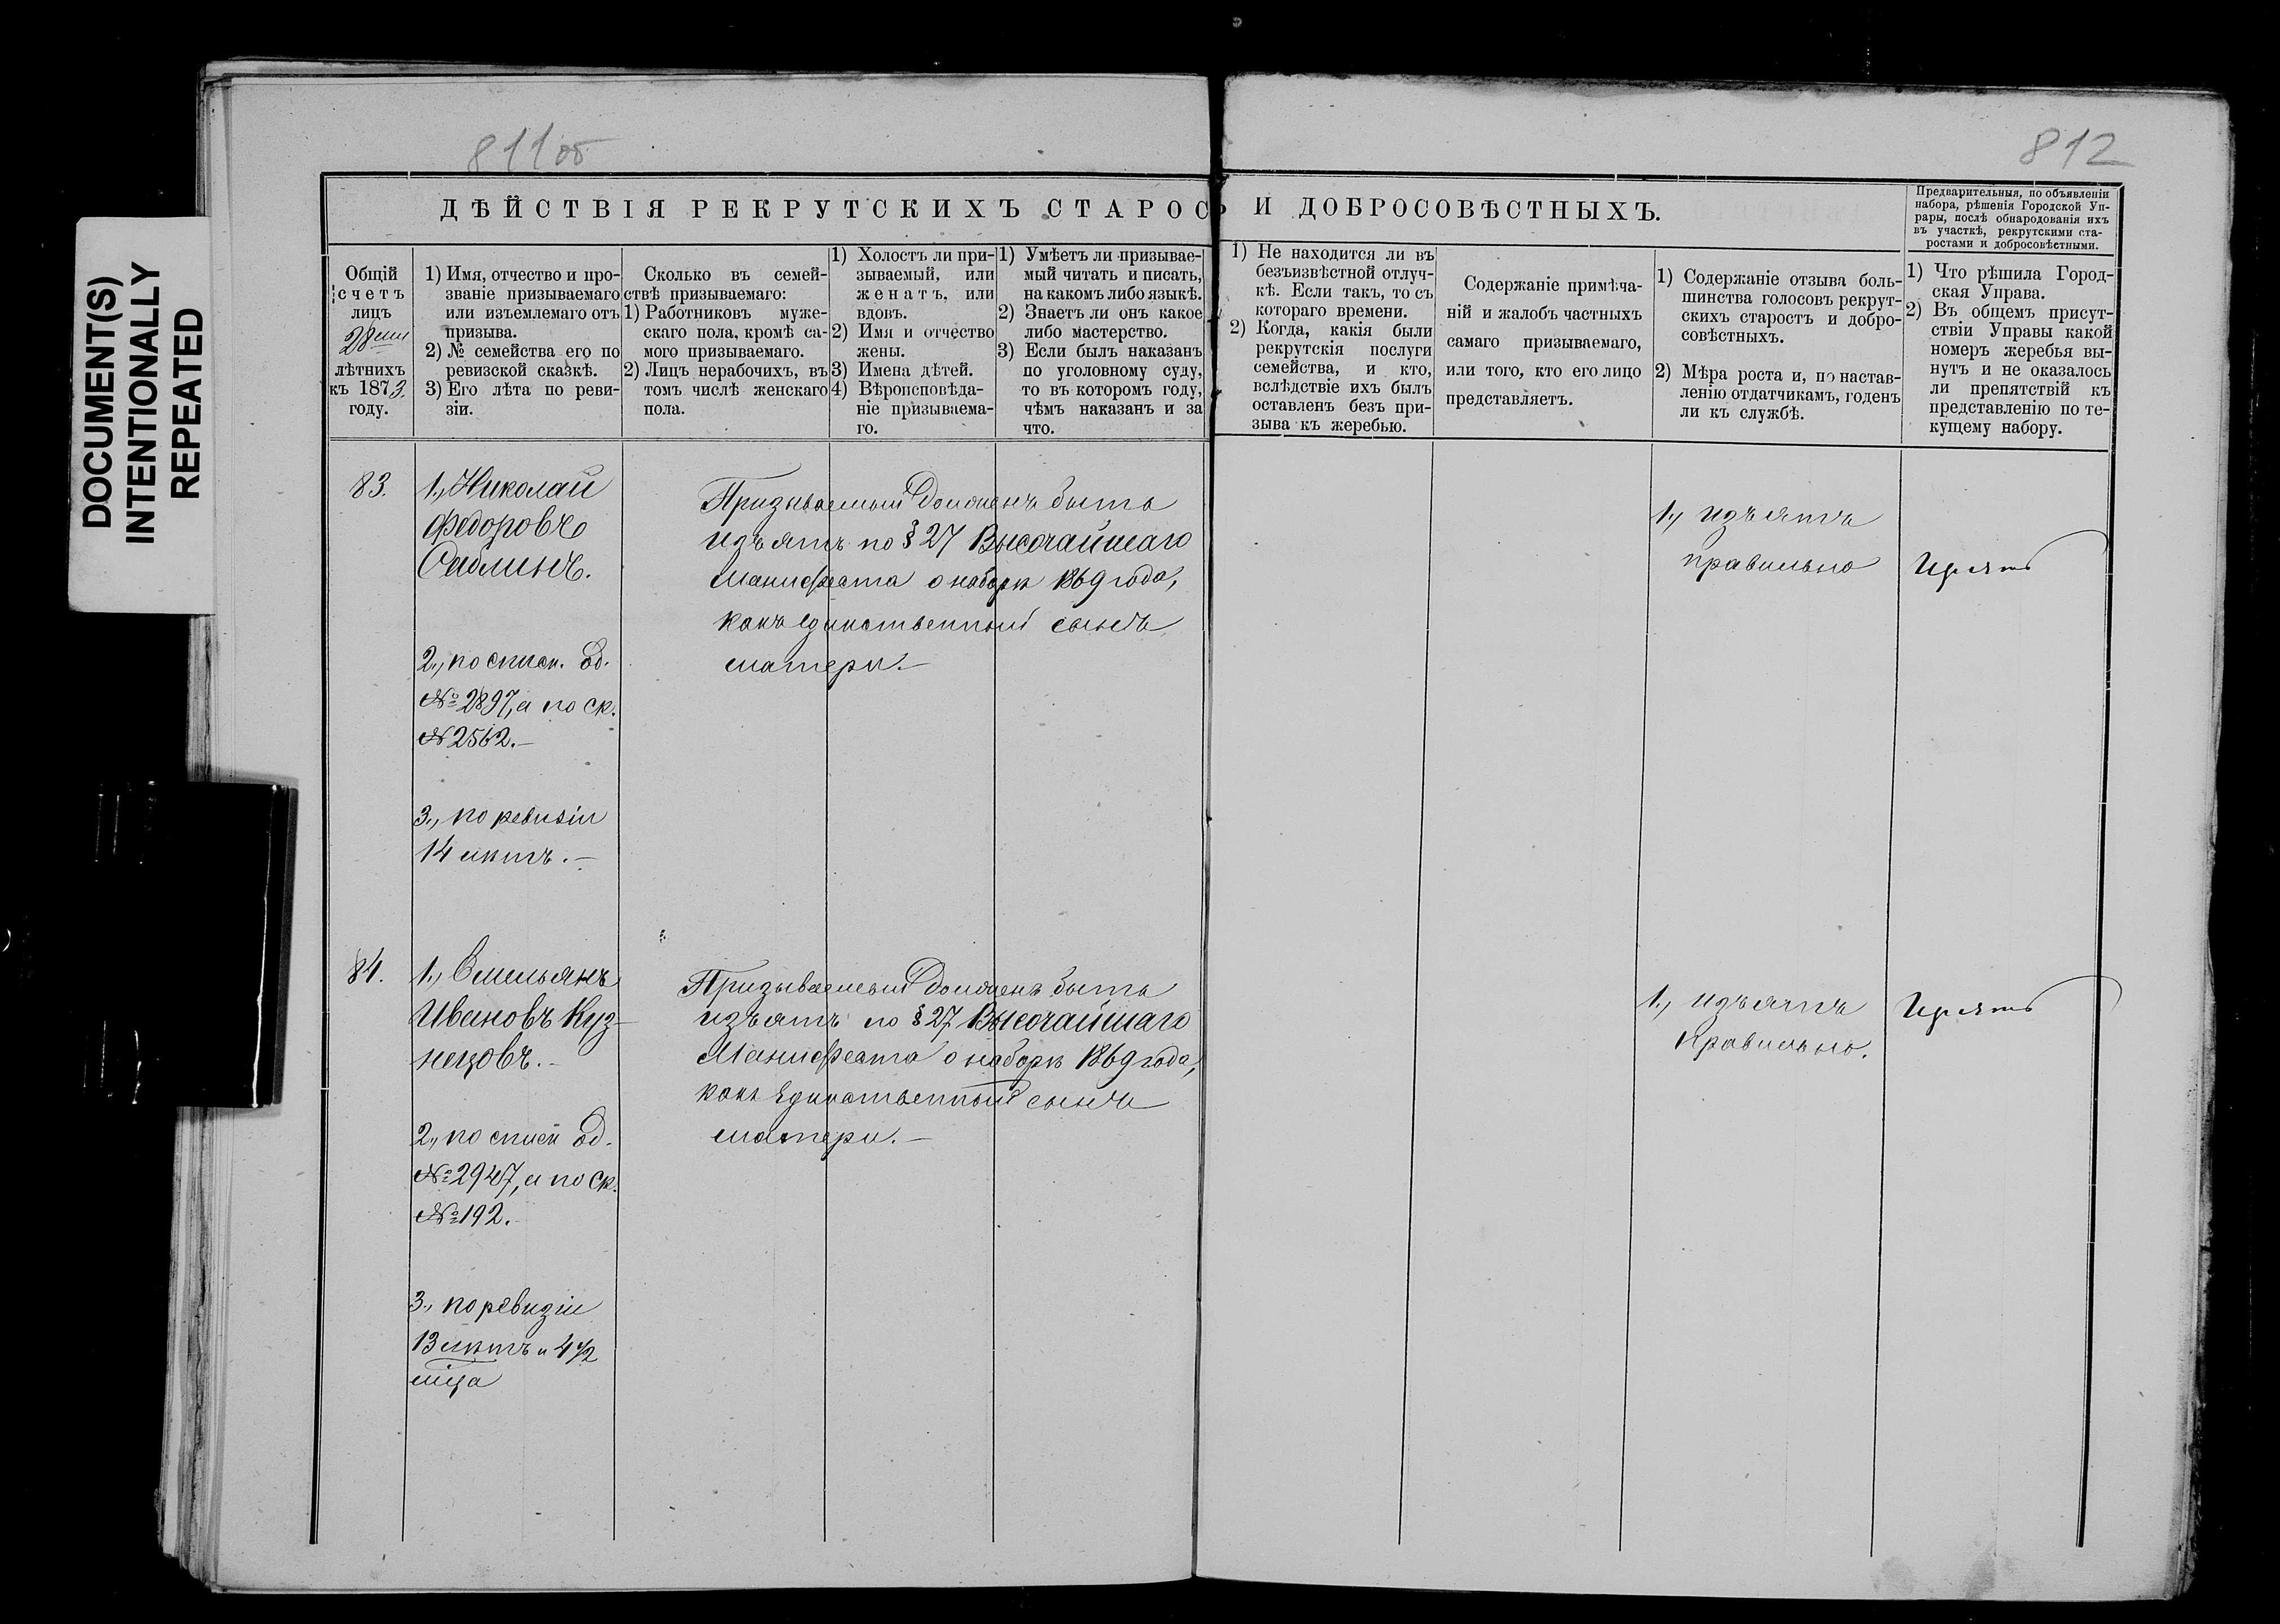 DOCUMENT(S)
INTENTIONALLY
REPEATED
811 об
812
ДѢЙСТВІЯ РЕКРУТСКИХЪ СТАРОС
Ъ И ДОБРОСОВѢСТНЫХЪ.
Предварительныя, по объявленіи
набора, рѣшенія Городской Уп-
равы, послѣ обнародованія ихъ
въ участкѣ, рекрутскими ста-
ростами и добросовѣстными.
Общій
счетъ
лицъ
28ми
лѣтнихъ
къ 1873
году.
1) Имя, отчество и про-
званіе призываемаго
или изъемлемаго отъ
призыва.
2) № семейства его по
ревизской сказкѣ.
3) Его лѣта по реви-
зіи.
Сколько въ семей-
ствѣ призываемаго:
1) Работниковъ муже-
скаго пола, кромѣ са-
мого призываемаго.
2) Лицъ нерабочихъ, въ
томъ числѣ женскаго
пола.
1) Холостъ ли при-
зываемый, или
женатъ, или
вдовъ.
2) Имя и отчество
жены.
3) Имена дѣтей.
4) Вѣроисповѣда-
ніе призываема-
го.
1) Умѣетъ ли призывае-
мый читать и писать,
на какомъ либо языкѣ.
2) Знаетъ ли онъ какое
либо мастерство.
3) Если былъ наказанъ
по уголовному суду,
то въ которомъ году,
чѣмъ наказанъ и за
что.
1) Не находится ли въ
безъизвѣстной отлуч-
кѣ. Если такъ, то съ
котораго времени.
2) Когда, какія были
рекрутскія послуги
семейства, и кто,
вслѣдствіе ихъ былъ
оставленъ безъ при-
зыва къ жеребью.
Содержаніе примѣча-
ній и жалобъ частныхъ
самаго призываемаго,
или того, кто его лицо
представляетъ.
1) Содержаніе отзыва боль-
шинства голосовъ рекрут-
скихъ старостъ и добро-
совѣстныхъ.
2) Мѣра роста и, по настав-
ленію отдатчикамъ, годенъ
ли къ службѣ.
1) Что рѣшила Город-
ская Управа.
2) Въ общемъ присут-
ствіи Управы какой
номеръ жеребья вы-
нутъ и не оказалось
ли препятствій къ
представленію по те-
кущему набору.
83.
1., Николай
Федоровъ
Саблинъ.
2., по списк. Об.
№ 2897, а по ск.
№ 2562.—
3., по ревизіи
14 лѣтъ.—
Призываемый долженъ быть
изъятъ по § 27 Высочайшаго
Манифеста о наборѣ 1869 года,
какъ единственный сынъ
матери.—
1., изъятъ
правильно
Изъять
84.
1., Емельянъ
Ивановъ Куз-
нецовъ.—
2., по списк Об.
№ 2947, а по ск.
№ 192.
3., по ревизіи
13 лѣтъ и 4 1/2
мѣца
Призываемый долженъ быть
изъятъ по § 27 Высочайшаго
Манифеста о наборѣ 1869 года,
какъ единственный сынъ
матери.—
1., изъятъ
правильно.
Изъять